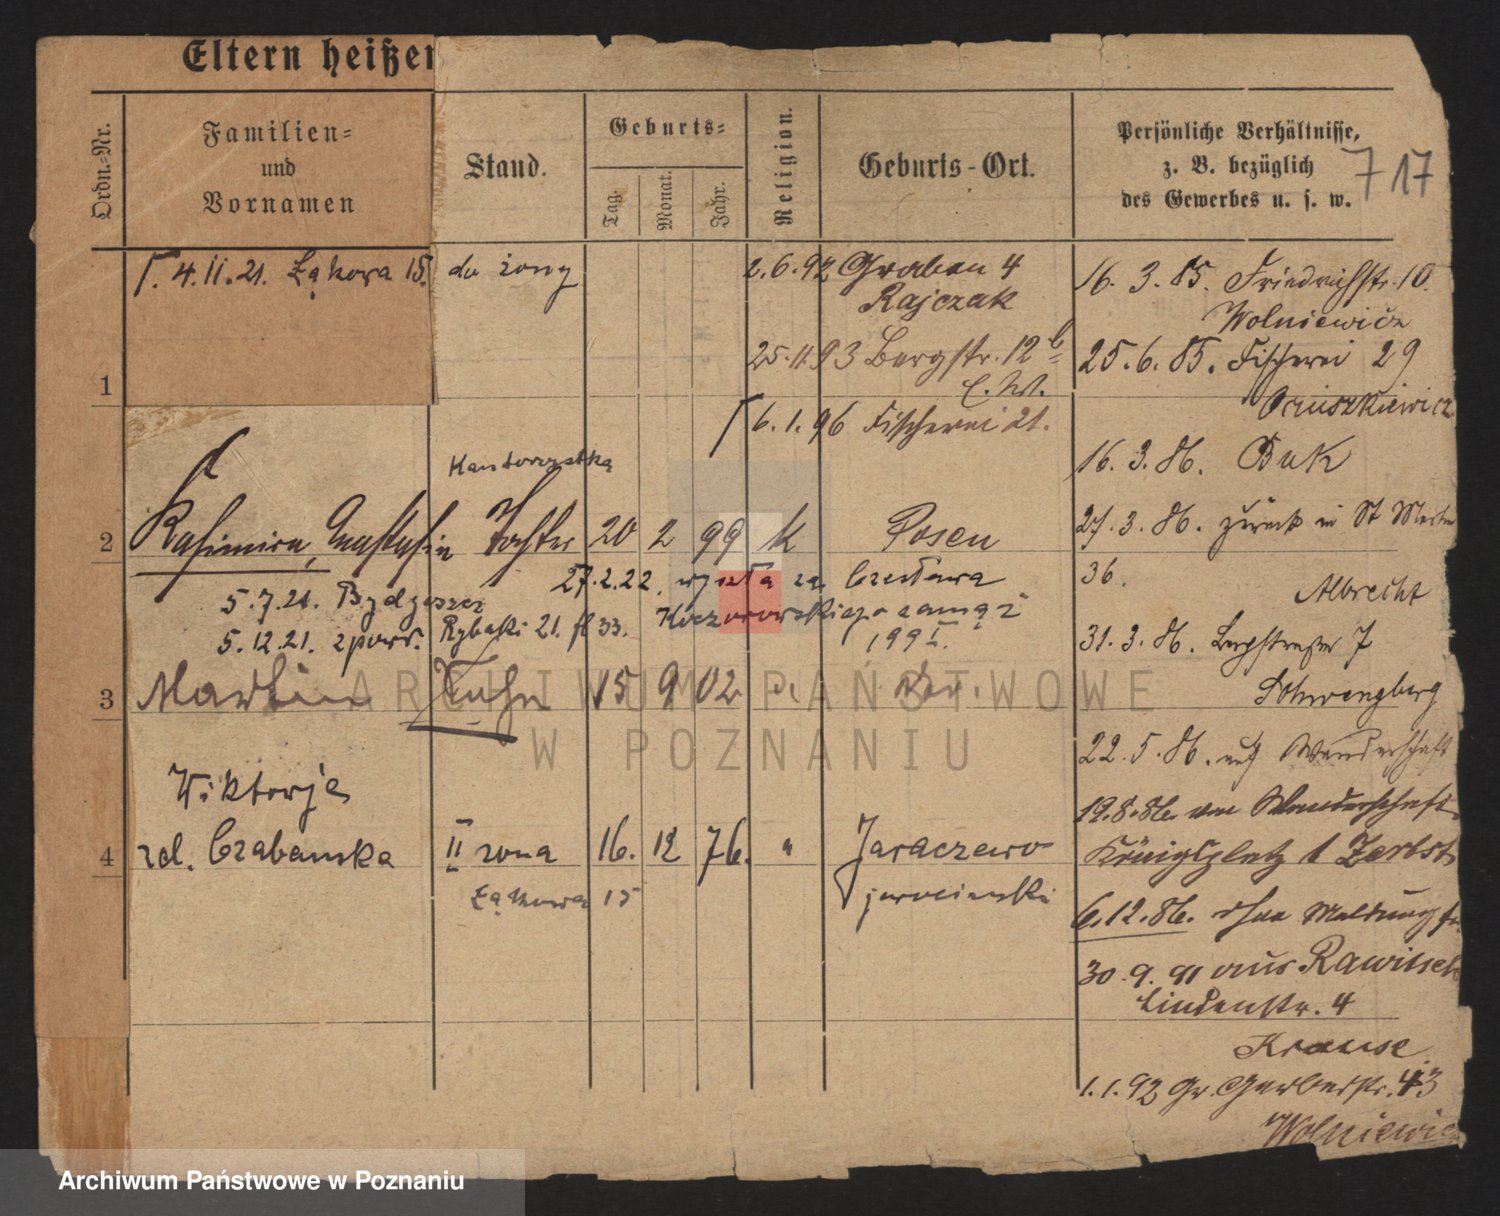 Eltern heißen
Ordn.-Nr.
Familien=
und
Vornamen
Stand.
Geburts=
Tag.
Monat.
Jahr.
Religion.
Geburts-Ort.
Persönliche Verhältnisse,
z. B. bezüglich
des Gewerbes u. s. w.
717
4.11.21. Łąkowa 15. do żony
2.6.92 Graben 4
Rajczak
25.11.93 Bergstr. 12b
6.1.96 Fischerei 21.
1
Kantorzystka
2 Kasimira, Anastasia Tochter 20 2 99 K Posen
27.2.22. wyszła za Czesława
Koczorowskiego zamąż
199 I.
5.7.21. Bydgoszcz
5.12.21. zpowr. Rybaki 21. 33.
3 Martin Sohn 15 9 02
Wiktorja
4 zd. Czabańska II żona 16. 12 76. " Jaraczewo
Łąkowa 15 jarociński
16.3.85. Friedrichstr. 10.
Wolniewicz
25.6.85. Fischerei 29
Ocruszkiewicz
16.3.86. Buk
27.3.86. zurück in St Martin
36.
Albrecht
31.3.86. Bergstraße 7
22.5.86. auf Wanderschaft
19.8.86. von Wanderschaft
Königsplatz 1 Zerbst
6.12.86. ohne Meldung
30.9.91 aus Rawitsch
Lindenstr. 4
Krause
1.1.92 Gr. Gerberstr. 43
Wolniewicz
ARCHIWUM PAŃSTWOWE
W POZNANIU
Archiwum Państwowe w Poznaniu